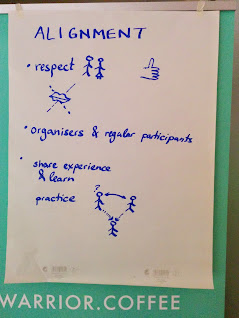 ALIGNMENT
• respect
• organisers & regular participants
• share experience
& learn
practice
?
WARRIOR.COFFEE